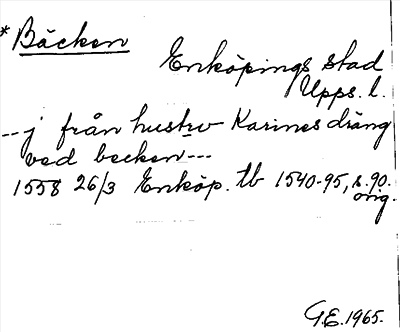 *Bäcken
Enköpings stad
Upps. l.
--j från hustrv Karines dräng
ved becken---
1558 26/3 Enköp. tb 1540-95, s. 90.
orig.
G.E. 1965.